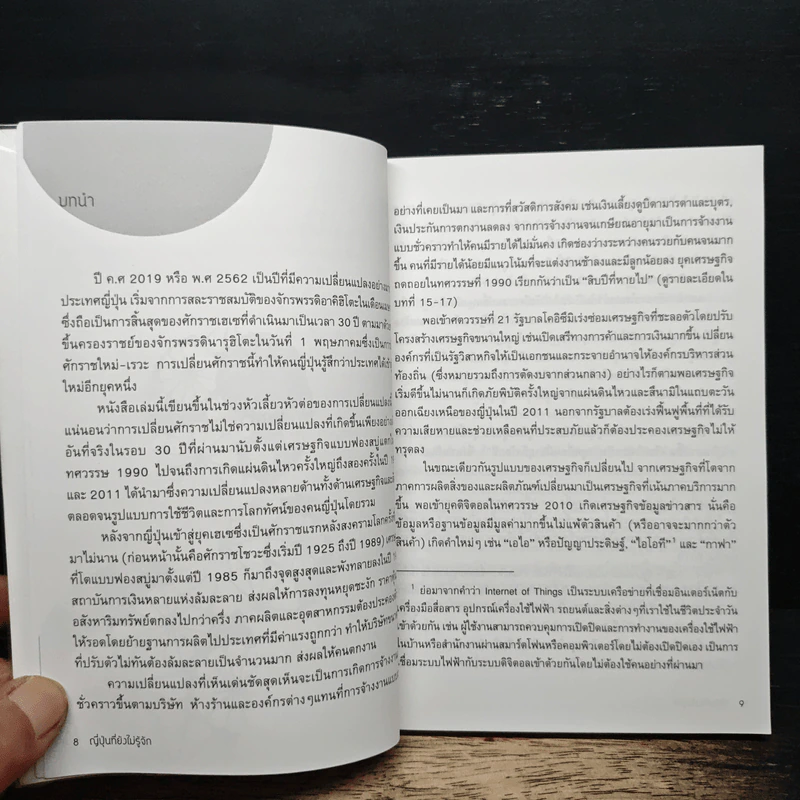 บทนำ
ปี ค.ศ 2019 หรือ พ.ศ 2562 เป็นปีที่มีความเปลี่ยนแปลงอย่าง
ประเทศญี่ปุ่น เริ่มจากการสละราชสมบัติของจักรพรรดิอาคิฮิโตะในเดือน
ซึ่งถือเป็นการสิ้นสุดของศักราชเฮเซที่ดำเนินมาเป็นเวลา 30 ปี ตามมาด้วย
ขึ้นครองราชย์ของจักรพรรดินารุฮิโตะในวันที่ 1 พฤษภาคมซึ่งเป็น
ศักราชใหม่-เรวะ การเปลี่ยนศักราชนี้ทำให้คนญี่ปุ่นรู้สึกว่าประเทศได้
ใหม่อีกยุคหนึ่ง
หนังสือเล่มนี้เขียนขึ้นในช่วงหัวเลี้ยวหัวต่อของการเปลี่ยนแปลง
แน่นอนว่าการเปลี่ยนศักราชไม่ใช่ความเปลี่ยนแปลงที่เกิดขึ้นเพียง
อันที่จริงในรอบ 30 ปีที่ผ่านมานับตั้งแต่เศรษฐกิจแบบฟองสบู่แตก
ทศวรรษ 1990 ไปจนถึงการเกิดแผ่นดินไหวครั้งใหญ่ถึงสองครั้งในปี
และ 2011 ได้นำมาซึ่งความเปลี่ยนแปลงหลายด้านทั้งด้านเศรษฐกิจและ
ตลอดจนรูปแบบการใช้ชีวิตและการโลกทัศน์ของคนญี่ปุ่นโดยรวม
หลังจากญี่ปุ่นเข้าสู่ยุคเฮเซซึ่งเป็นศักราชแรกหลังสงครามโลกครั้งที่
มาไม่นาน (ก่อนหน้านั้นคือศักราชโชวะซึ่งเริ่มปี 1925 ถึงปี 1989)
ที่โตแบบฟองสบู่มาตั้งแต่ปี 1985 ก็มาถึงจุดสูงสุดและพังทลายลงในปี
สถาบันการเงินหลายแห่งล้มละลาย ส่งผลให้การลงทุนหยุดชะงัก
อสังหาริมทรัพย์ตกลงไปกว่าครึ่ง ภาคผลิตและอุตสาหกรรมต้องประคอง
ให้รอดโดยย้ายฐานการผลิตไปประเทศที่มีค่าแรงถูกกว่า ทำให้บริษัท
ที่ปรับตัวไม่ทันต้องล้มละลายเป็นจำนวนมาก ส่งผลให้คนตกงาน
ความเปลี่ยนแปลงที่เห็นเด่นชัดสุดเห็นจะเป็นการเกิดการจ้างงาน
ชั่วคราวขึ้นตามบริษัท ห้างร้านและองค์กรต่างๆแทนที่การจ้างงาน
8 ญี่ปุ่นที่ยังไม่รู้จัก
อย่างที่เคยเป็นมา และการที่สวัสดิการสังคม เช่นเงินเลี้ยงดูบิดามารดาและบุตร,
เงินประกันการตกงานลดลง จากการจ้างงานจนเกษียณอายุมาเป็นการจ้างงาน
แบบชั่วคราวทำให้คนมีรายได้ไม่มั่นคง เกิดช่องว่างระหว่างคนรวยกับคนจนมาก
ขึ้น คนที่มีรายได้น้อยมีแนวโน้มที่จะแต่งงานช้าลงและมีลูกน้อยลง ยุคเศรษฐกิจ
ถดถอยในทศวรรษที่ 1990 เรียกกันว่าเป็น “สิบปีที่หายไป” (ดูรายละเอียดใน
บทที่ 15-17)
พอเข้าศตวรรษที่ 21 รัฐบาลโคอิซึมิเร่งซ่อมเศรษฐกิจที่ชะลอตัวโดยปรับ
โครงสร้างเศรษฐกิจขนานใหญ่ เช่นเปิดเสรีทางการค้าและการเงินมากขึ้น เปลี่ยน
องค์กรที่เป็นรัฐวิสาหกิจให้เป็นเอกชนและกระจายอำนาจให้องค์กรบริหารส่วน
ท้องถิ่น (ซึ่งหมายรวมถึงการตัดงบจากส่วนกลาง) อย่างไรก็ตามพอเศรษฐกิจ
เริ่มดีขึ้นไม่นานก็เกิดภัยพิบัติครั้งใหญ่จากแผ่นดินไหวและสึนามิในแถบตะวัน
ออกเฉียงเหนือของญี่ปุ่นในปี 2011 นอกจากรัฐบาลต้องเร่งฟื้นฟูพื้นที่ที่ได้รับ
ความเสียหายและช่วยเหลือคนที่ประสบภัยแล้วก็ต้องประคองเศรษฐกิจไม่ให้
ทรุดลง
ในขณะเดียวกันรูปแบบของเศรษฐกิจก็เปลี่ยนไป จากเศรษฐกิจที่โตจาก
ภาคการผลิตสิ่งของและผลิตภัณฑ์เปลี่ยนมาเป็นเศรษฐกิจที่เน้นภาคบริการมาก
ขึ้น พอเข้ายุคดิจิตอลในทศวรรษ 2010 เกิดเศรษฐกิจข้อมูลข่าวสาร นั่นคือ
ข้อมูลหรือฐานข้อมูลมีมูลค่ามากขึ้นไม่แพ้ตัวสินค้า (หรืออาจจะมากกว่าตัว
สินค้า) เกิดคำใหม่ๆ เช่น “เอไอ” หรือปัญญาประดิษฐ์, “ไอโอที”¹ และ “กาฟา”
1 ย่อมาจากคำว่า Internet of Things เป็นระบบเครือข่ายที่เชื่อมอินเตอร์เน็ตกับ
เครื่องมือสื่อสาร อุปกรณ์เครื่องใช้ไฟฟ้า รถยนต์และสิ่งต่างๆที่เราใช้ในชีวิตประจำวัน
เข้าด้วยกัน เช่น ผู้ใช้งานสามารถควบคุมการเปิดปิดและการทำงานของเครื่องใช้ไฟฟ้า
ในบ้านหรือสำนักงานผ่านสมาร์ตโฟนหรือคอมพิวเตอร์โดยไม่ต้องเปิดปิดเอง เป็นการ
เชื่อมระบบไฟฟ้ากับระบบดิจิตอลเข้าด้วยกันโดยไม่ต้องใช้คนอย่างที่ผ่านมา
9